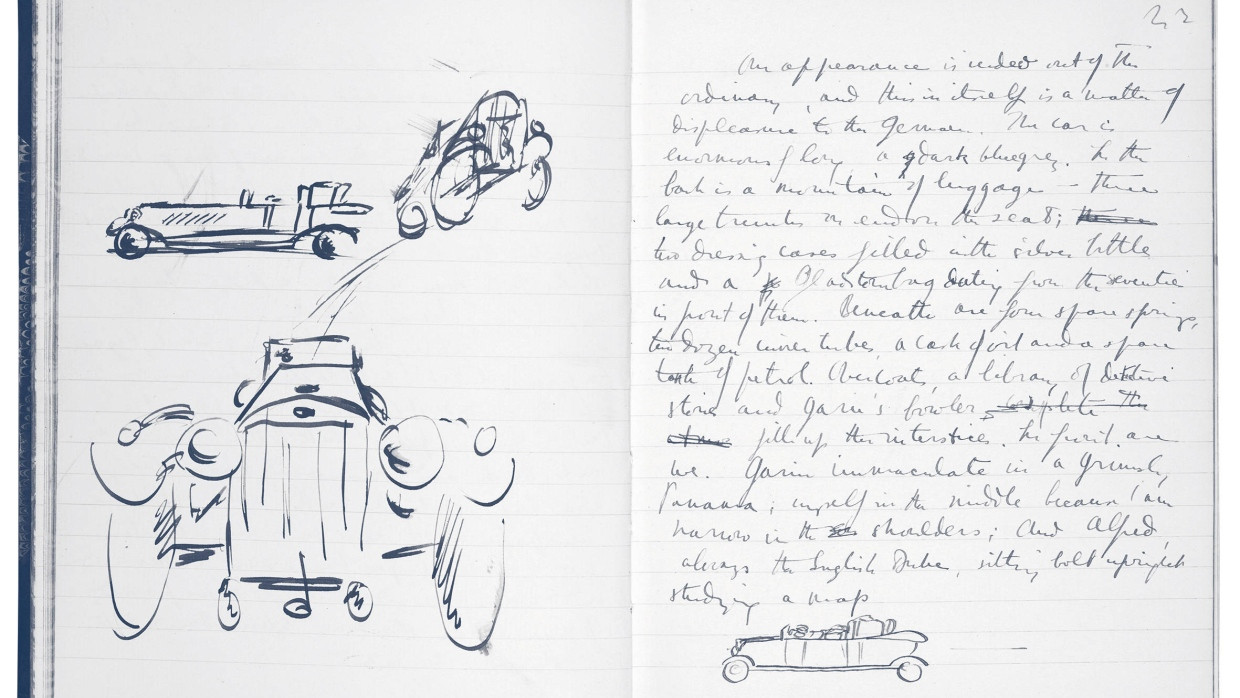 22
Our appearance is indeed out of the
ordinary, and this in itself is a matter of
displeasure to the German. The car is
enormously long, a dark bluegrey. In the
back is a mountain of luggage – three
large trunks on end on the seat;
two dressing cases filled with silver bottle
and a Gladstonbag dating from the seventies
in front of them. Beneath are four spare springs,
two dozen inner tubes, a cask of oil and a spare
tank of petrol. Overcoats, a library of detective
stories and Gavin's bowler complete the
fill up the interstices. In front are
we. Gavin immaculate in a
Panama; myself in the middle because I am
narrow in the shoulders; and Alfred,
always the English Duke, sitting bolt upright
studying a map